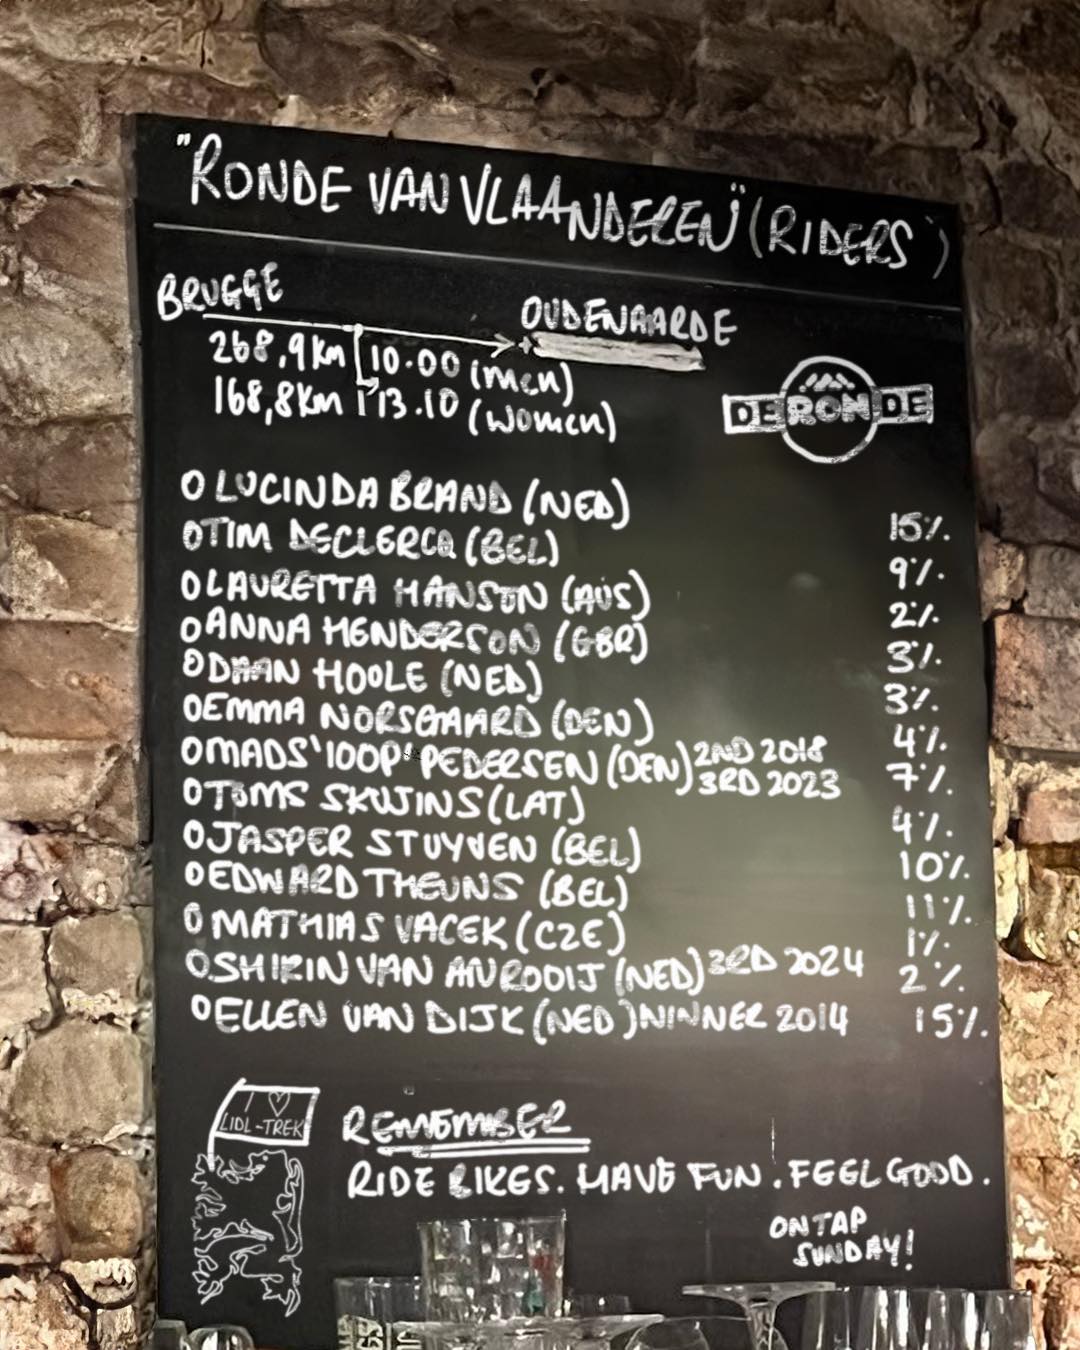 "RONDE VAN VLAANDEREN" (RIDERS)
BRUGGE
OUDENAARDE
268,9km 10.00 (men)
168,8km 13.10 (women)
DE RONDE
O LUCINDA BRAND (NED) 15%.
O TIM DECLERCQ (BEL) 9%.
O LAURETTA HANSON (AUS) 2%.
O ANNA HENDERSON (GBR) 3%.
O DAAN HOOLE (NED) 3%.
O EMMA NORSGAARD (DEN) 4%.
O MADS '100P' PEDERSEN (DEN) 2ND 2018 3RD 2023 7%.
O TOMS SKUJINS (LAT) 4%.
O JASPER STUYVEN (BEL) 10%.
O EDWARD THEUNS (BEL) 11%.
O MATHIAS VACEK (CZE) 1%.
O SHIRIN VAN ANROOIJ (NED) 3RD 2024 2%.
O ELLEN VAN DIJK (NED) WINNER 2014 15%.
I ♡
LIDL-TREK
REMEMBER
RIDE BIKES. HAVE FUN. FEEL GOOD.
ON TAP
SUNDAY!